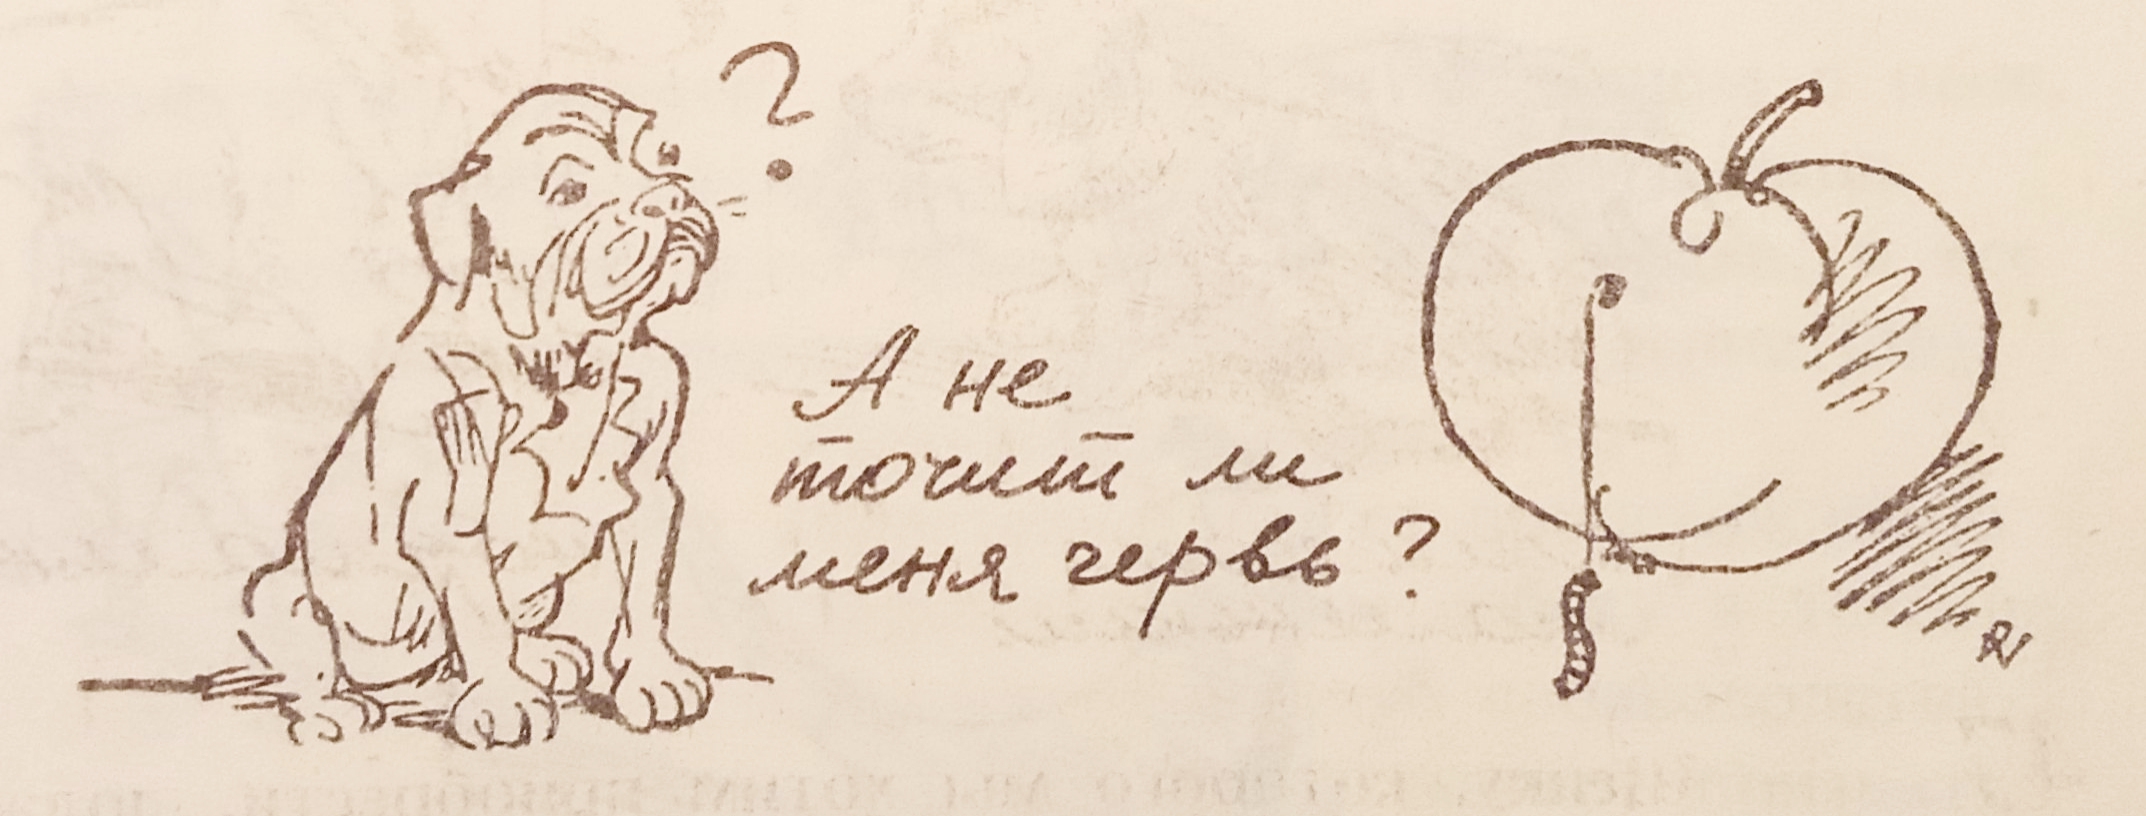 ?
А не
точит ли
меня червь?